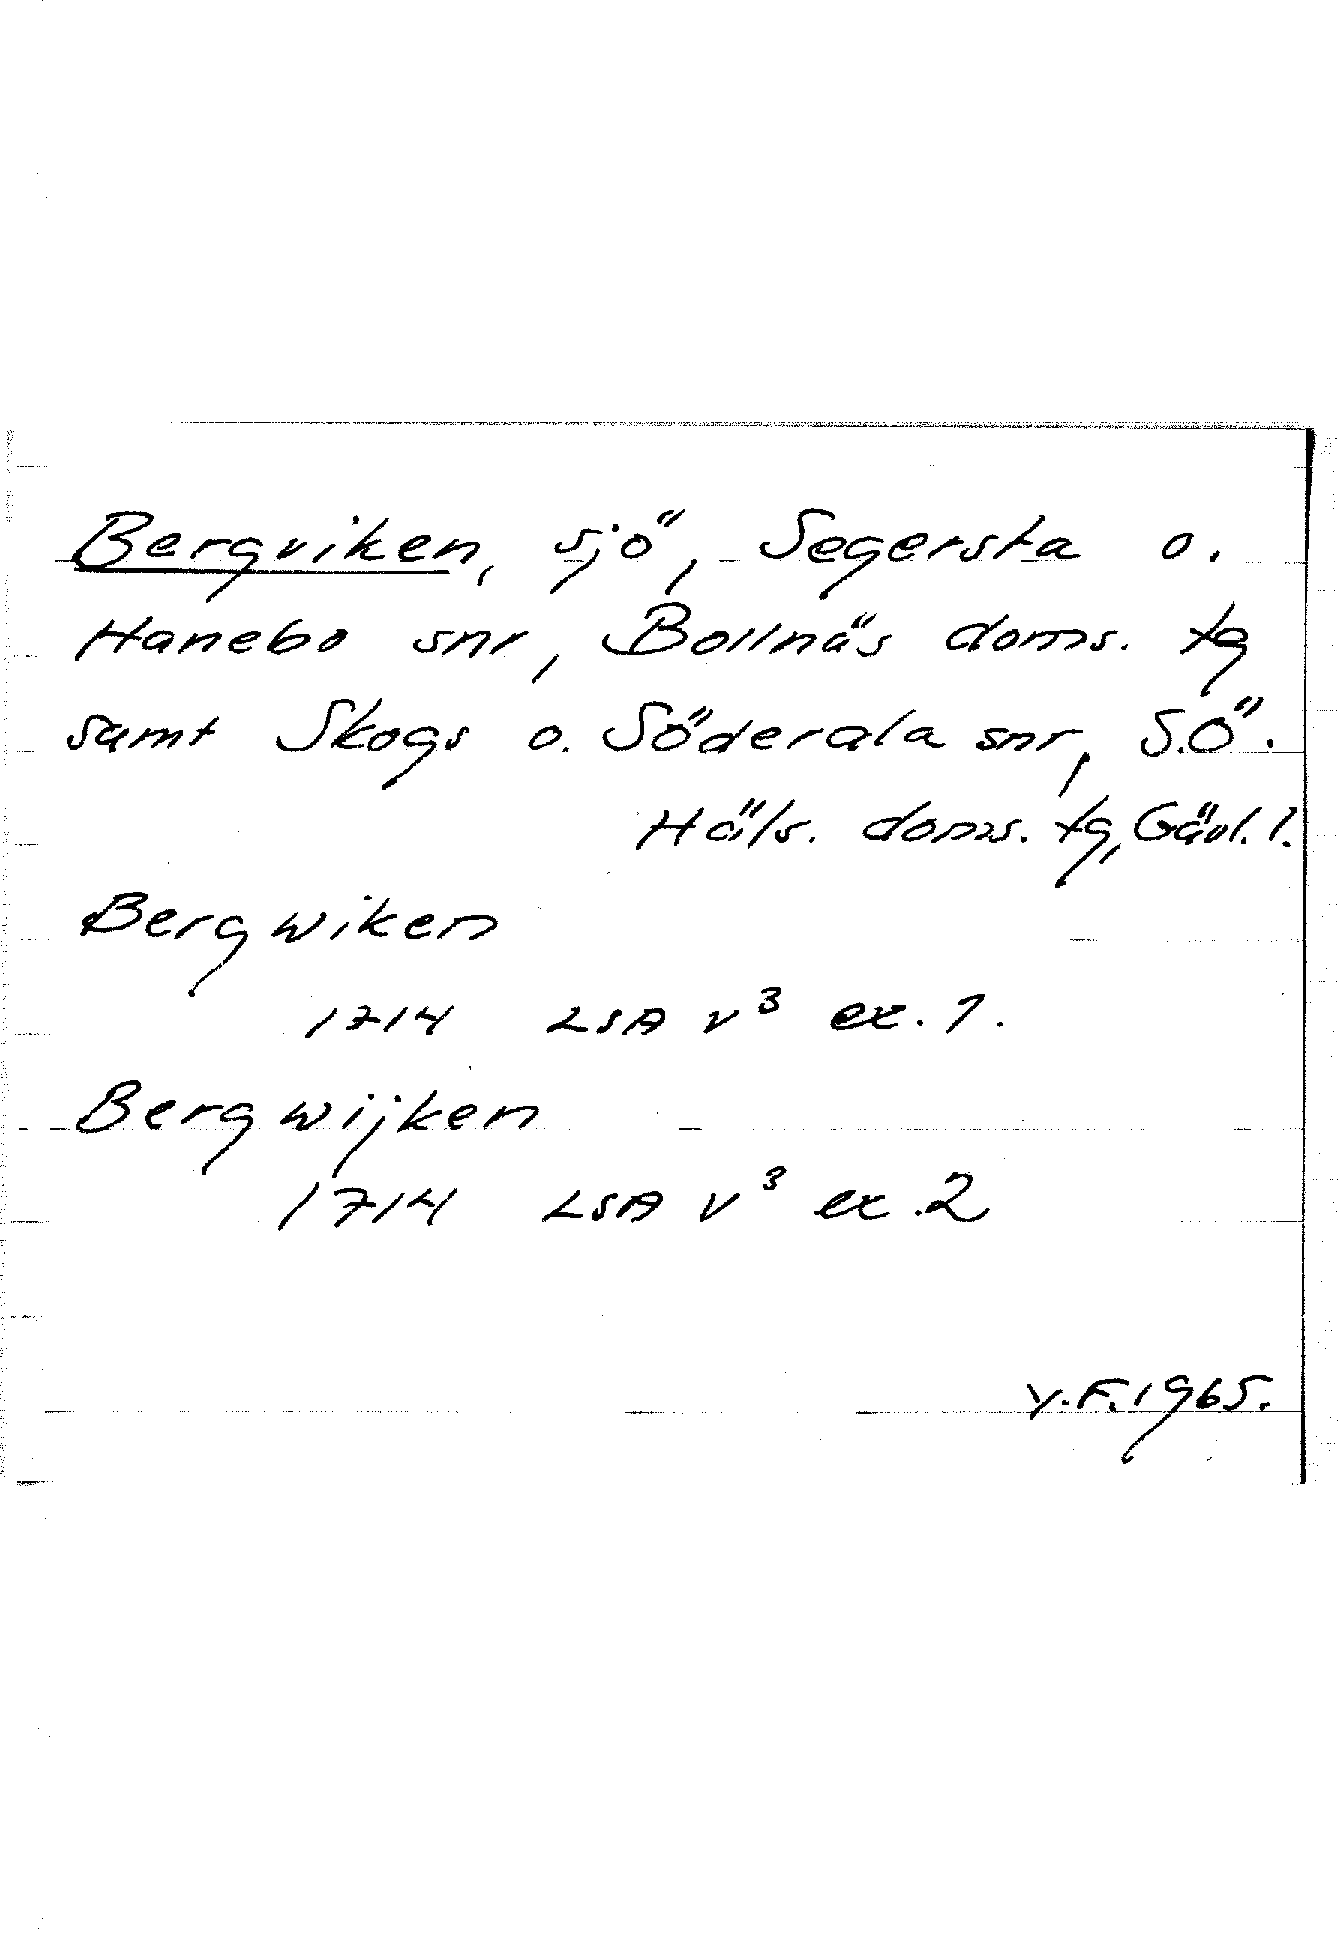 Bergviken, sjö, Segersta o.
Hanebo snr, Bollnäs doms. tg
samt Skogs o. Söderala snr, S.Ö.
Häls. doms. tg, Gävl. l.
Bergwiken
1714 LSA v³ ex. 1.
Bergwijken
1714 LSA v³ ex. 2
Y.F. 1965.